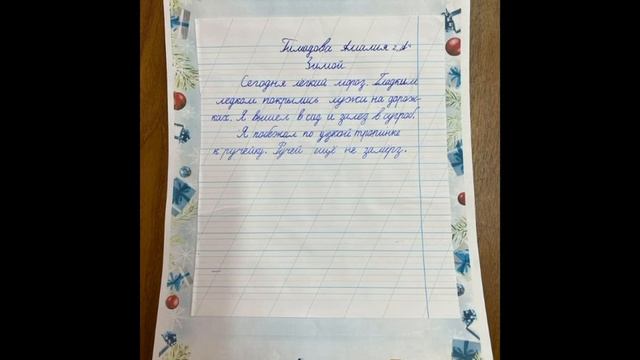 Гимадова Амалия 2 "А"
Зимой
Сегодня лёгкий мороз. Гладким
ледком покрылись лужи на дорож-
ках. Я вышел в сад и залез в сугроб.
Я побежал по узкой тропинке
к ручейку. Ручей ещё не замёрз.